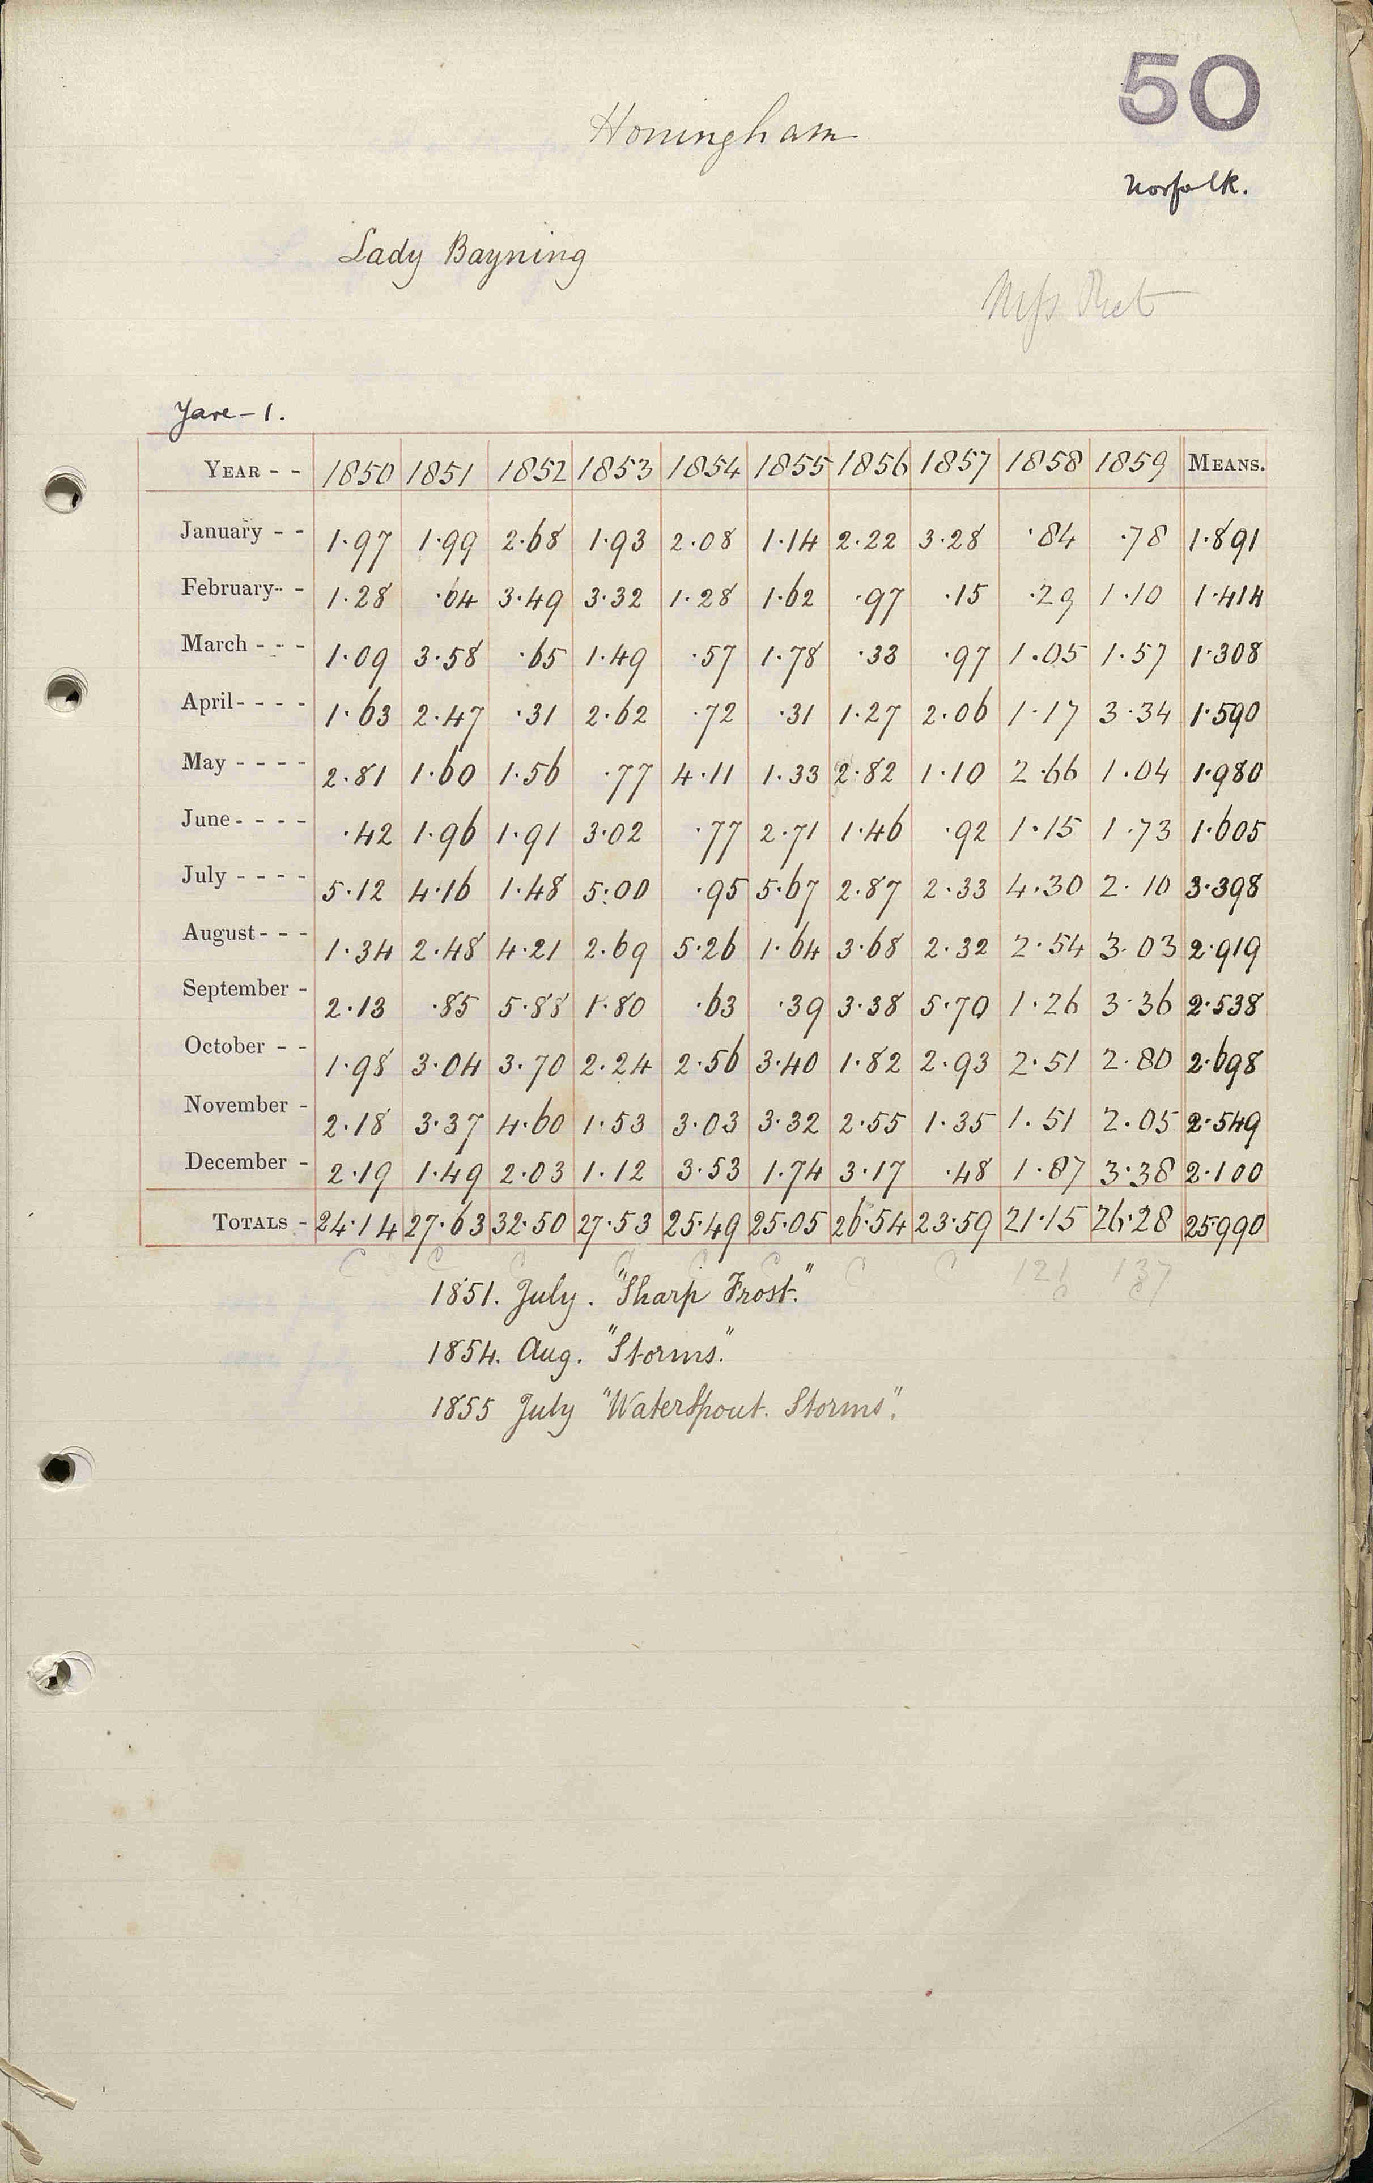 50
Honingham
Norfolk.
Lady Bayning
Yare - 1.
YEAR - - 1850 1851 1852 1853 1854 1855 1856 1857 1858 1859 MEANS.
January - - 1·97 1·99 2·68 1·93 2·08 1·14 2·22 3·28 ·84 ·78 1·891
February - - 1·28 ·64 3·49 3·32 1·28 1·62 ·97 ·15 ·29 1·10 1·414
March - - - 1·09 3·58 ·65 1·49 ·57 1·78 ·33 ·97 1·05 1·57 1·308
April - - - - 1·63 2·47 ·31 2·62 ·72 ·31 1·27 2·06 1·17 3·34 1·590
May - - - - 2·81 1·60 1·56 ·77 4·11 1·33 2·82 1·10 2·66 1·04 1·980
June - - - - ·42 1·96 1·91 3·02 ·77 2·71 1·46 ·92 1·15 1·73 1·605
July - - - - 5·12 4·16 1·48 5·00 ·95 5·67 2·87 2·33 4·30 2·10 3·398
August - - - 1·34 2·48 4·21 2·69 5·26 1·64 3·68 2·32 2·54 3·03 2·919
September - 2·13 ·85 5·88 1·80 ·63 ·39 3·38 5·70 1·26 3·36 2·538
October - - 1·98 3·04 3·70 2·24 2·56 3·40 1·82 2·93 2·51 2·80 2·698
November - 2·18 3·37 4·60 1·53 3·03 3·32 2·55 1·35 1·51 2·05 2·549
December - 2·19 1·49 2·03 1·12 3·53 1·74 3·17 ·48 1·87 3·38 2·100
TOTALS - 24·14 27·63 32·50 27·53 25·49 25·05 26·54 23·59 21·15 26·28 25·990
C C C C C C C C 121 137
C C
1851. July. "Sharp Frost."
1854. Aug. "Storms."
1855 July "WaterSpout. Storms".